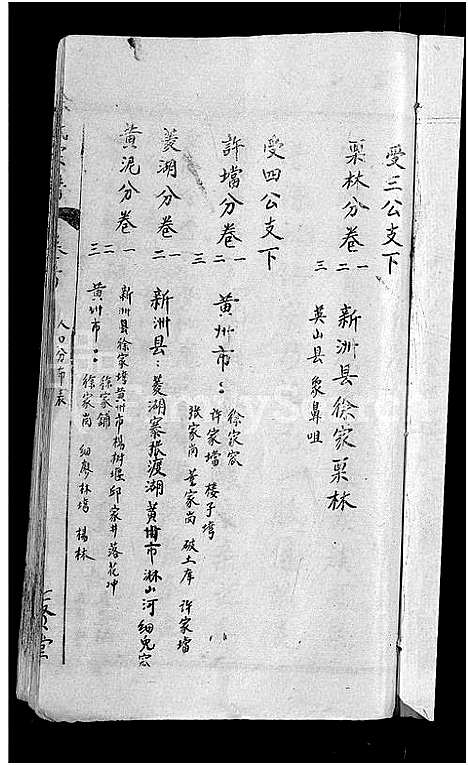 受三公支下
栗林分卷 一二 新洲县徐家栗林
三 英山县象鼻咀
受四公支下
許壋分卷 一二三 黄州市：徐家宕
许家壋 楼子塆
张家岗 董家岗 破土库 许家壋
菱湖分卷 一二 新洲县：菱湖寨张渡湖黄州市淋山河细兔宕
黄泥分卷 一二三 新洲县徐家塆黄州市杨树堰邱家井落花冲
徐家铺
黄州市：徐家岗 细廖林塆 杨林
卷首 人口分布表
堂